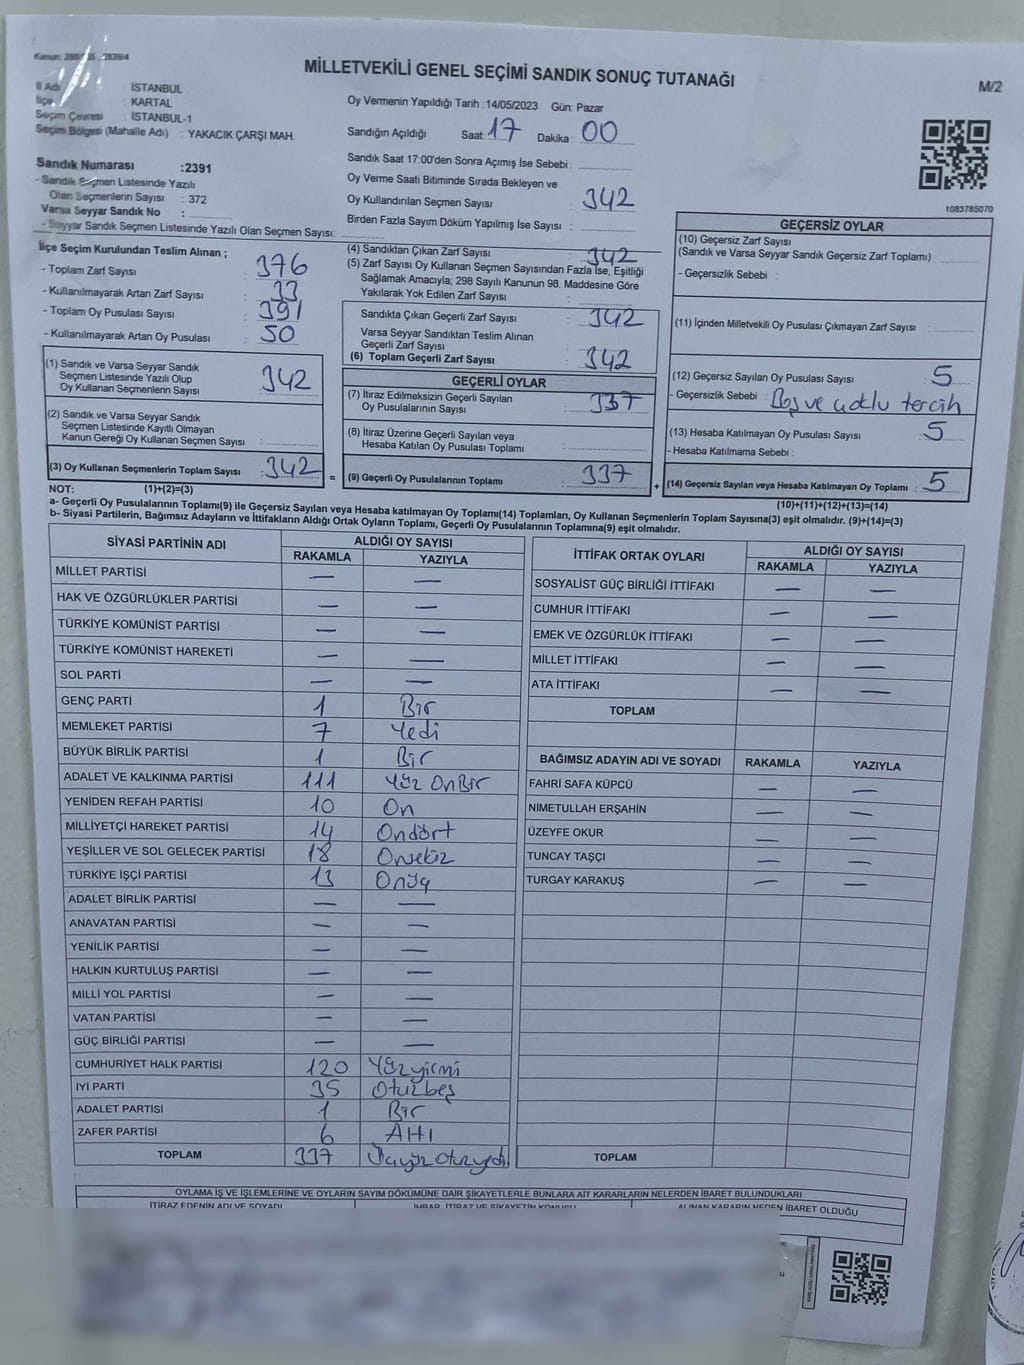 MİLLETVEKİLİ GENEL SEÇİMİ SANDIK SONUÇ TUTANAĞI
M/2
İl Adı : İSTANBUL
İlçe : KARTAL
Seçim Çevresi : İSTANBUL-1
Seçim Bölgesi (Mahalle Adı) : YAKACIK ÇARŞI MAH.
Sandık Numarası :2391
- Sandık Seçmen Listesinde Yazılı
Olan Seçmenlerin Sayısı : 372
Varsa Seyyar Sandık No :
- Seyyar Sandık Seçmen Listesinde Yazılı Olan Seçmen Sayısı:
İlçe Seçim Kurulundan Teslim Alınan ;
- Toplam Zarf Sayısı : 376
- Kullanılmayarak Artan Zarf Sayısı : 33
- Toplam Oy Pusulası Sayısı : 391
- Kullanılmayarak Artan Oy Pusulası : 50
(1) Sandık ve Varsa Seyyar Sandık
Seçmen Listesinde Yazılı Olup
Oy Kullanan Seçmenlerin Sayısı : 342
(2) Sandık ve Varsa Seyyar Sandık
Seçmen Listesinde Kayıtlı Olmayan
Kanun Gereği Oy Kullanan Seçmen Sayısı :
(3) Oy Kullanan Seçmenlerin Toplam Sayısı : 342
Oy Vermenin Yapıldığı Tarih : 14/05/2023 Gün: Pazar
Sandığın Açıldığı Saat: 17 Dakika : 00
Sandık Saat 17:00'den Sonra Açımış İse Sebebi :
Oy Verme Saati Bitiminde Sırada Bekleyen ve
Oy Kullandırılan Seçmen Sayısı : 342
Birden Fazla Sayım Döküm Yapılmış İse Sayısı :
(4) Sandıktan Çıkan Zarf Sayısı : 342
(5) Zarf Sayısı Oy Kullanan Seçmen Sayısından Fazla İse, Eşitliği
Sağlamak Amacıyla; 298 Sayılı Kanunun 98. Maddesine Göre
Yakılarak Yok Edilen Zarf Sayısı :
Sandıkta Çıkan Geçerli Zarf Sayısı : 342
Varsa Seyyar Sandıktan Teslim Alınan
Geçerli Zarf Sayısı :
(6) Toplam Geçerli Zarf Sayısı : 342
GEÇERLİ OYLAR
(7) İtiraz Edilmeksizin Geçerli Sayılan
Oy Pusulalarının Sayısı : 337
(8) İtiraz Üzerine Geçerli Sayılan veya
Hesaba Katılan Oy Pusulası Toplamı :
= (9) Geçerli Oy Pusulalarının Toplamı : 337
1083785070
GEÇERSİZ OYLAR
(10) Geçersiz Zarf Sayısı
(Sandık ve Varsa Seyyar Sandık Geçersiz Zarf Toplamı) :
- Geçersizlik Sebebi :
(11) İçinden Milletvekili Oy Pusulası Çıkmayan Zarf Sayısı :
(12) Geçersiz Sayılan Oy Pusulası Sayısı : 5
- Geçersizlik Sebebi : Boş ve çoklu tercih
(13) Hesaba Katılmayan Oy Pusulası Sayısı : 5
- Hesaba Katılmama Sebebi :
+ (14) Geçersiz Sayılan veya Hesaba Katılmayan Oy Toplamı : 5
NOT: (1)+(2)=(3)
(10)+(11)+(12)+(13)=(14)
a- Geçerli Oy Pusulalarının Toplamı(9) ile Geçersiz Sayılan veya Hesaba katılmayan Oy Toplamı(14) Toplamları, Oy Kullanan Seçmenlerin Toplam Sayısına(3) eşit olmalıdır. (9)+(14)=(3)
b- Siyasi Partilerin, Bağımsız Adayların ve İttifakların Aldığı Ortak Oyların Toplamı, Geçerli Oy Pusulalarının Toplamına(9) eşit olmalıdır.
SİYASİ PARTİNİN ADI ALDIĞI OY SAYISI
RAKAMLA YAZIYLA
MİLLET PARTİSİ — —
HAK VE ÖZGÜRLÜKLER PARTİSİ — —
TÜRKİYE KOMÜNİST PARTİSİ — —
TÜRKİYE KOMÜNİST HAREKETİ — —
SOL PARTİ — —
GENÇ PARTİ 1 Bir
MEMLEKET PARTİSİ 7 Yedi
BÜYÜK BİRLİK PARTİSİ 1 Bir
ADALET VE KALKINMA PARTİSİ 111 Yüz OnBir
YENİDEN REFAH PARTİSİ 10 On
MİLLİYETÇİ HAREKET PARTİSİ 14 Ondört
YEŞİLLER VE SOL GELECEK PARTİSİ 18 Onsekiz
TÜRKİYE İŞÇİ PARTİSİ 13 Onüç
ADALET BİRLİK PARTİSİ — —
ANAVATAN PARTİSİ — —
YENİLİK PARTİSİ — —
HALKIN KURTULUŞ PARTİSİ — —
MİLLİ YOL PARTİSİ — —
VATAN PARTİSİ — —
GÜÇ BİRLİĞİ PARTİSİ — —
CUMHURİYET HALK PARTİSİ 120 Yüzyirmi
İYİ PARTİ 35 Otuzbeş
ADALET PARTİSİ 1 Bir
ZAFER PARTİSİ 6 Altı
TOPLAM 337 Üçyüz Otuzyedi
İTTİFAK ORTAK OYLARI ALDIĞI OY SAYISI
RAKAMLA YAZIYLA
SOSYALİST GÜÇ BİRLİĞİ İTTİFAKI — —
CUMHUR İTTİFAKI — —
EMEK VE ÖZGÜRLÜK İTTİFAKI — —
MİLLET İTTİFAKI — —
ATA İTTİFAKI — —
TOPLAM
BAĞIMSIZ ADAYIN ADI VE SOYADI RAKAMLA YAZIYLA
FAHRİ SAFA KÜPCÜ — —
NİMETULLAH ERŞAHİN — —
ÜZEYFE OKUR — —
TUNCAY TAŞÇI — —
TURGAY KARAKUŞ — —
TOPLAM
OYLAMA İŞ VE İŞLEMLERİNE VE OYLARIN SAYIM DÖKÜMÜNE DAİR ŞİKAYETLERLE BUNLARA AİT KARARLARIN NELERDEN İBARET BULUNDUKLARI
İTİRAZ EDENİN ADI VE SOYADI
İHBAR, İTİRAZ VE ŞİKAYETİN KONUSU
ALINAN KARARIN NEDEN İBARET OLDUĞU